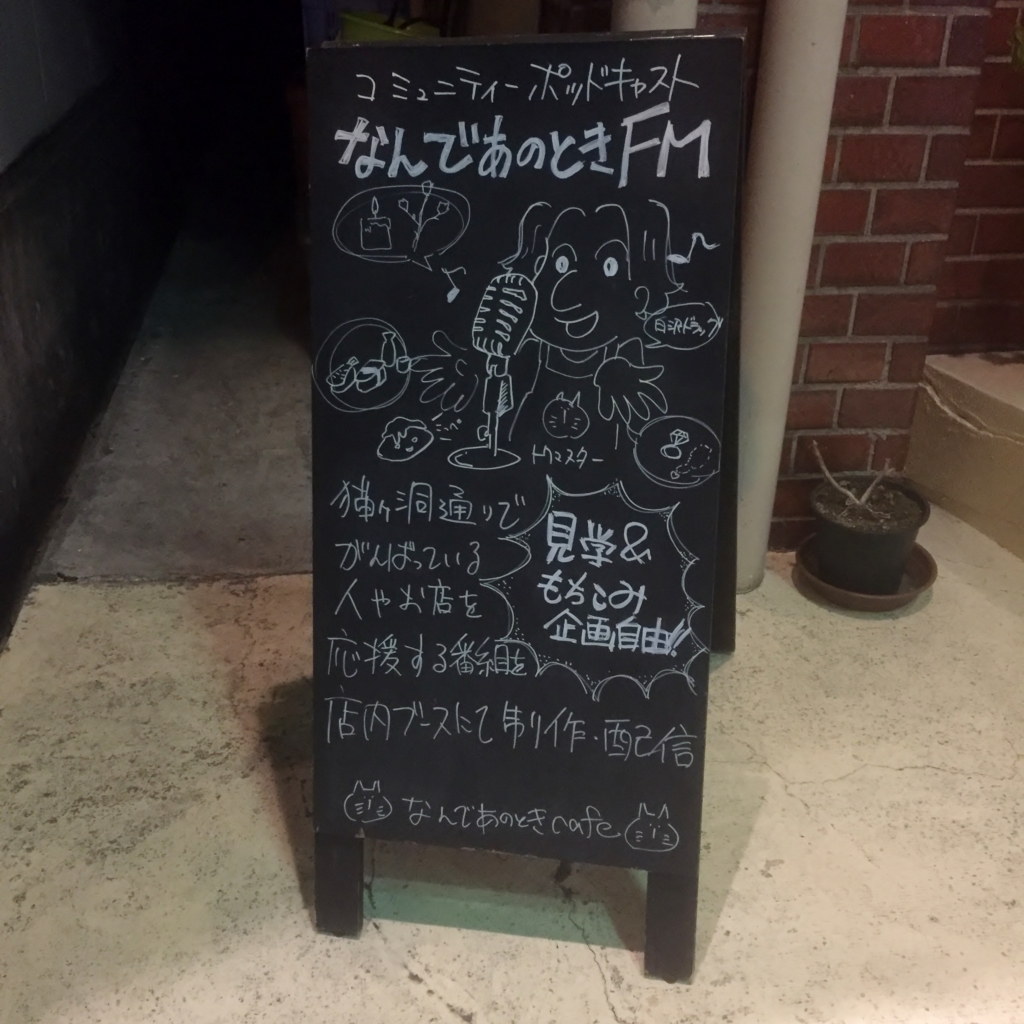 コミュニティーポッドキャスト
なんであのときFM
白沢ドラッグ
マスター
猫ヶ洞通りで
がんばっている
人やお店を
応援する番組を
店内ブースにて制作・配信
見学&
もちこみ
企画自由!!
なんであのときcafe